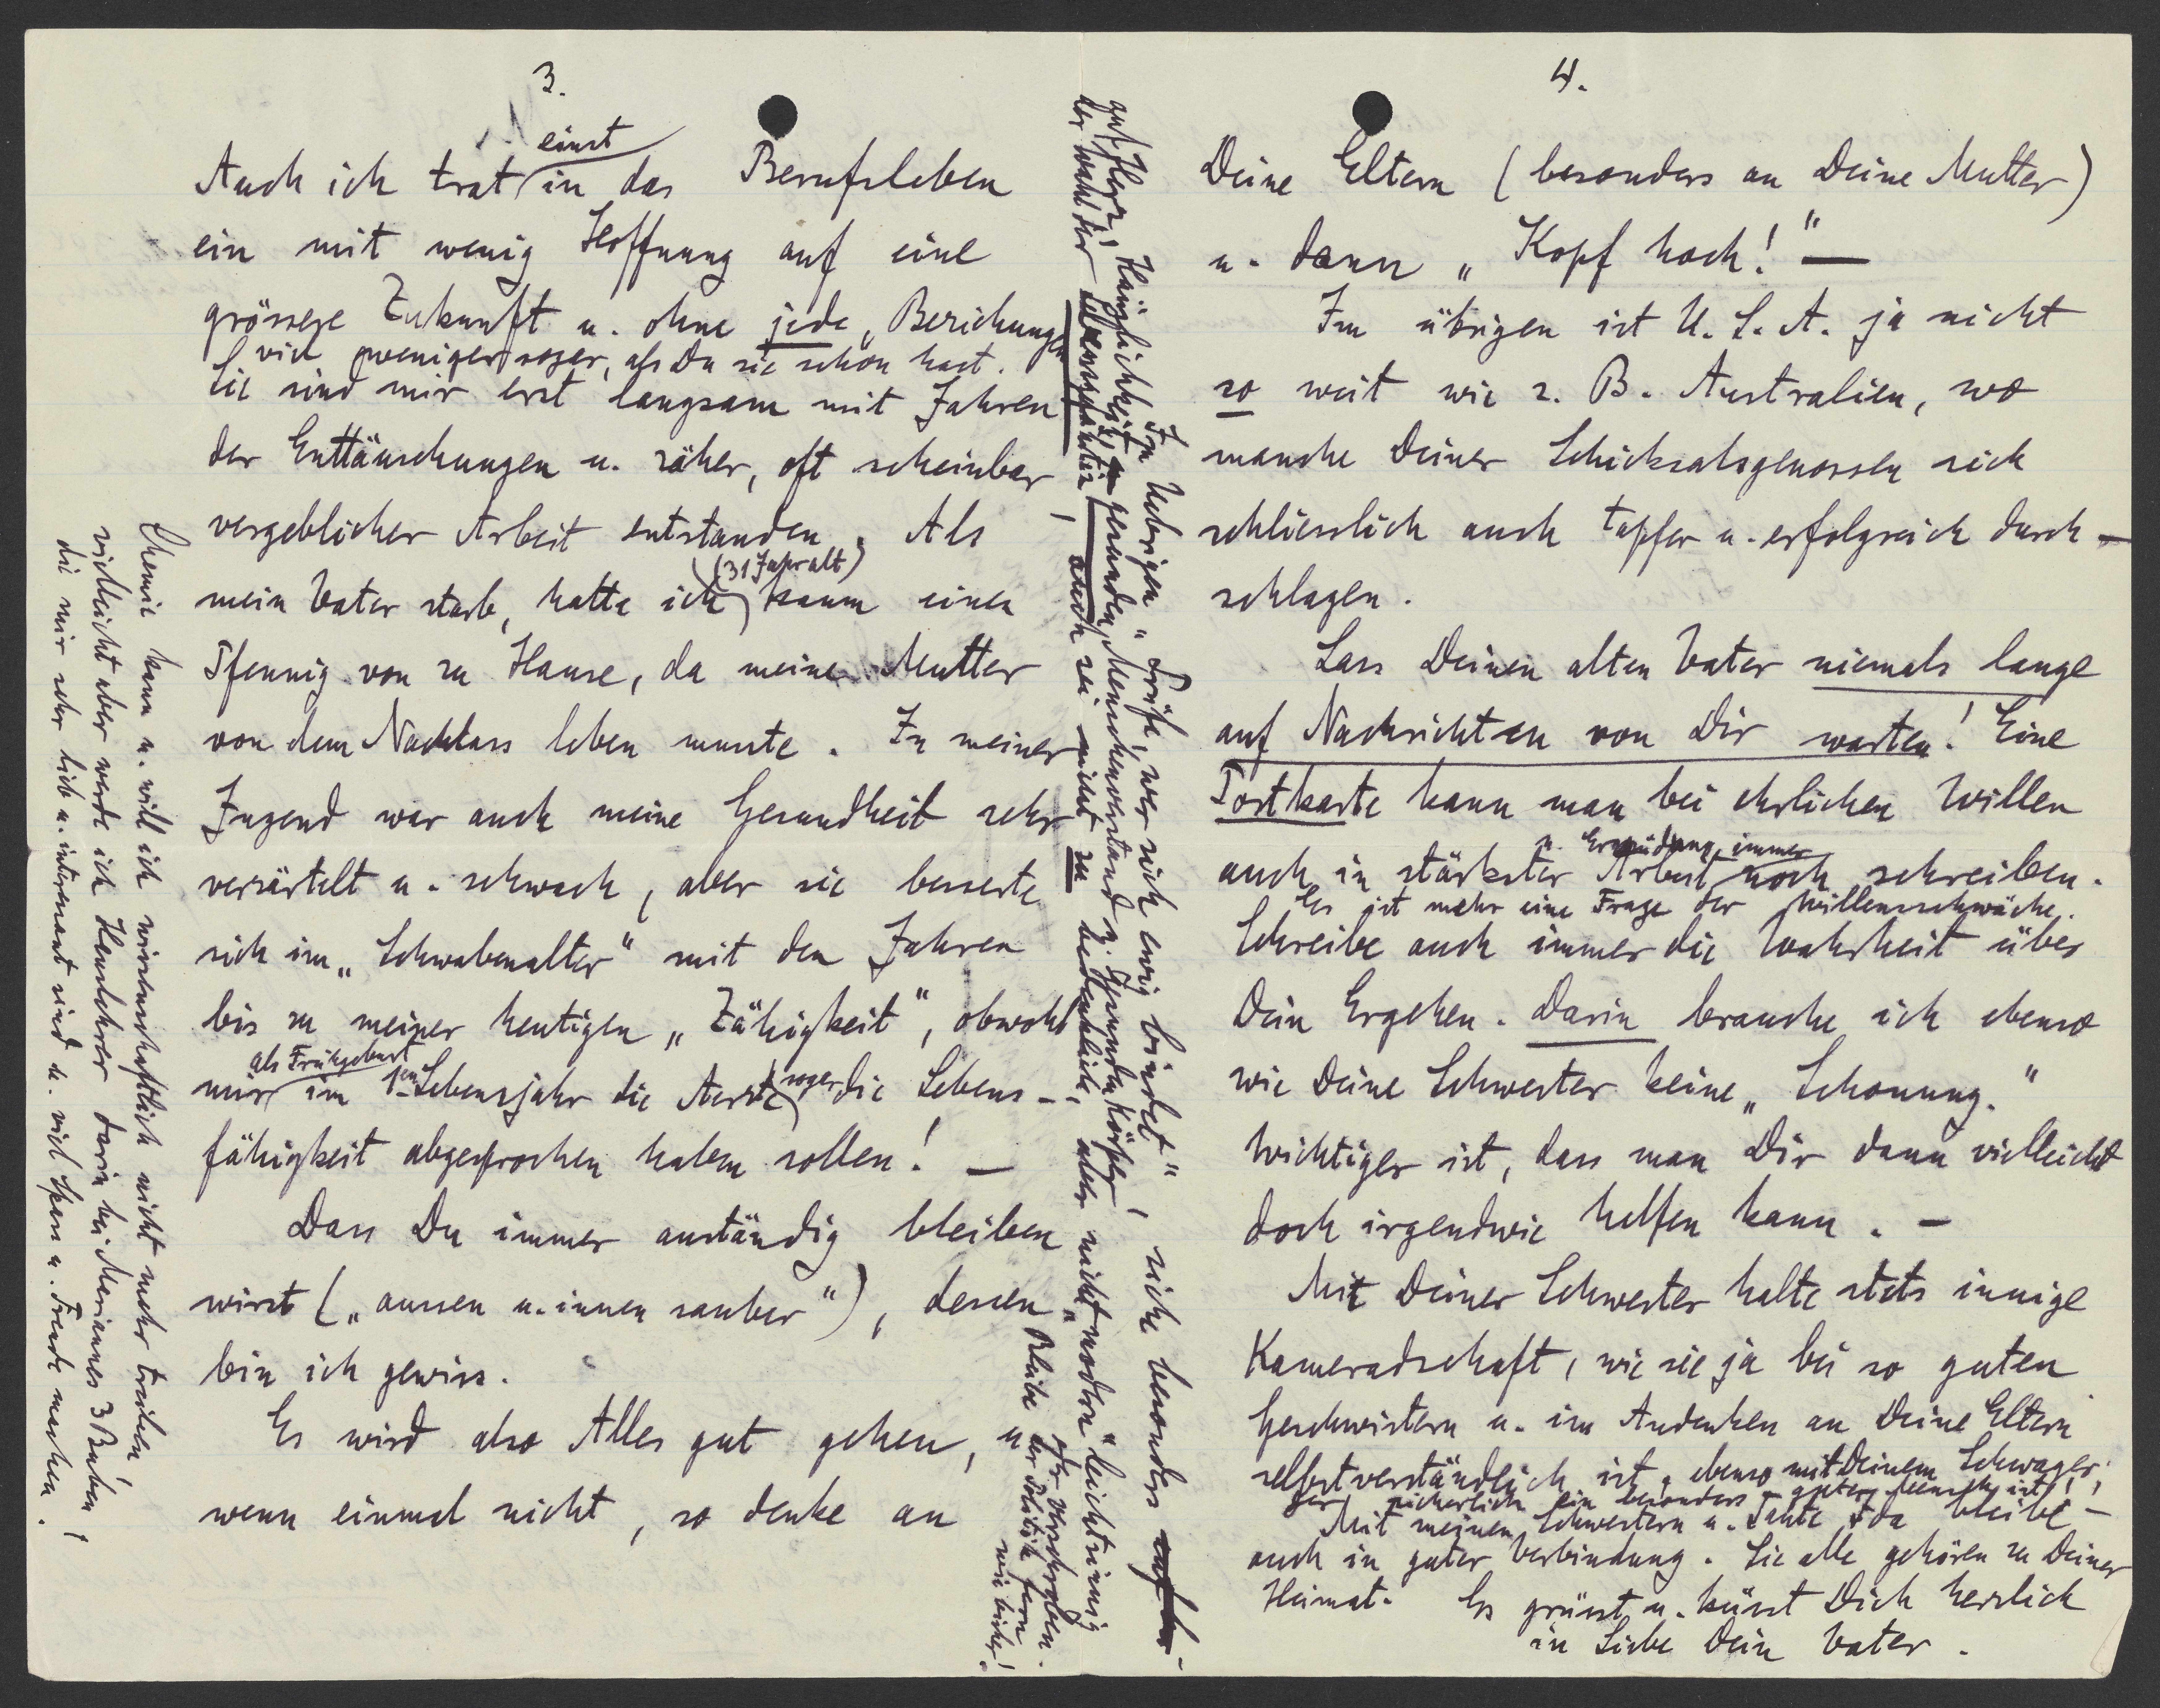 3.
Auch ich trat einst in das Berufsleben
ein mit wenig Hoffnung auf eine
grössere Zukunft u. ohne jede „Beziehungen
viel weniger sogar, als Du sie schon hast.
Sie sind mir erst langsam mit Jahren
der Enttäuschungen u. zäher, oft scheinbar
vergeblicher Arbeit entstanden. Als
mein Vater starb, hatte ich (31 Jahr alt) kaum einen
Pfennig von zu Hause, da meine Mutter
von dem Nachlass leben musste. In meiner
Jugend war auch meine Gesundheit sehr
verzärtelt u. schwach, aber sie besserte
sich im „Schwabenalter" mit den Jahren
bis zu meiner heutigen „Zähigkeit", obwohl
mir als Frühgeburt im 1ten Lebensjahr die Aerzte sogar die Lebens-
fähigkeit abgesprochen haben sollen! —
Dass Du immer anständig bleiben
wirst („aussen u. innen sauber"), dessen
bin ich gewiss.
Es wird also Alles gut gehen, u.
wenn einmal nicht, so denke an
Bleibe der Politik fern
wie bisher!
oder verschroben.
Chemie kann u. will ich wissenschaftlich nicht mehr treiben,
vielleicht aber werde ich Hauslehrer darin bei Mariannes 3 Buben!
die mir sehr lieb u. interessant sind u. viel Spass u. Freude machen.
Im Uebrigen „drüfe, wer sich ewig bindet", siehe besonders
auf Herz, Häuslichkeit, gesunden Menschenverstand u. gesunden Körper,
der Wahl der Lebensgefährtin, auch sei nicht zu bedenklich, aber nicht „modern" leichtsinnig
4.
Deine Eltern (besonders an Deine Mutter)
u. dann „Kopf hoch!" —
Im übrigen ist U. S. A. ja nicht
so weit wie z. B. Australien, wo
manche Deiner Schicksalsgenossen sich
schliesslich auch tapfer u. erfolgreich durch-
schlagen.
Lass Deinen alten Vater niemals lange
auf Nachrichten von Dir warten! Eine
Postkarte kann man bei ehrlichen Willen
auch in stärkster Arbeit u. Ermüdung immer noch schreiben.
Es ist mehr eine Frage der Willensschwäche.
Schreibe auch immer die Wahrheit über
Dein Ergehen. Darin brauche ich ebenso
wie Deine Schwester keine „Schonung."
Wichtiger ist, dass man Dir dann vielleicht
doch irgendwie helfen kann. —
Mit Deiner Schwester halte stets innige
Kameradschaft, wie sie ja bei so guten
Geschwistern u. im Andenken an Deine Eltern
selbstverständlich ist, ebenso mit Deinem Schwager,
der sicherlich ein besonders guter Mensch ist!
Mit meinen Schwestern u. Tante Ida bleibe
auch in guter Verbindung. Sie alle gehören zu Deiner
Heimat. Es grüsst u. küsst Dich herzlich
in Liebe Dein Vater.